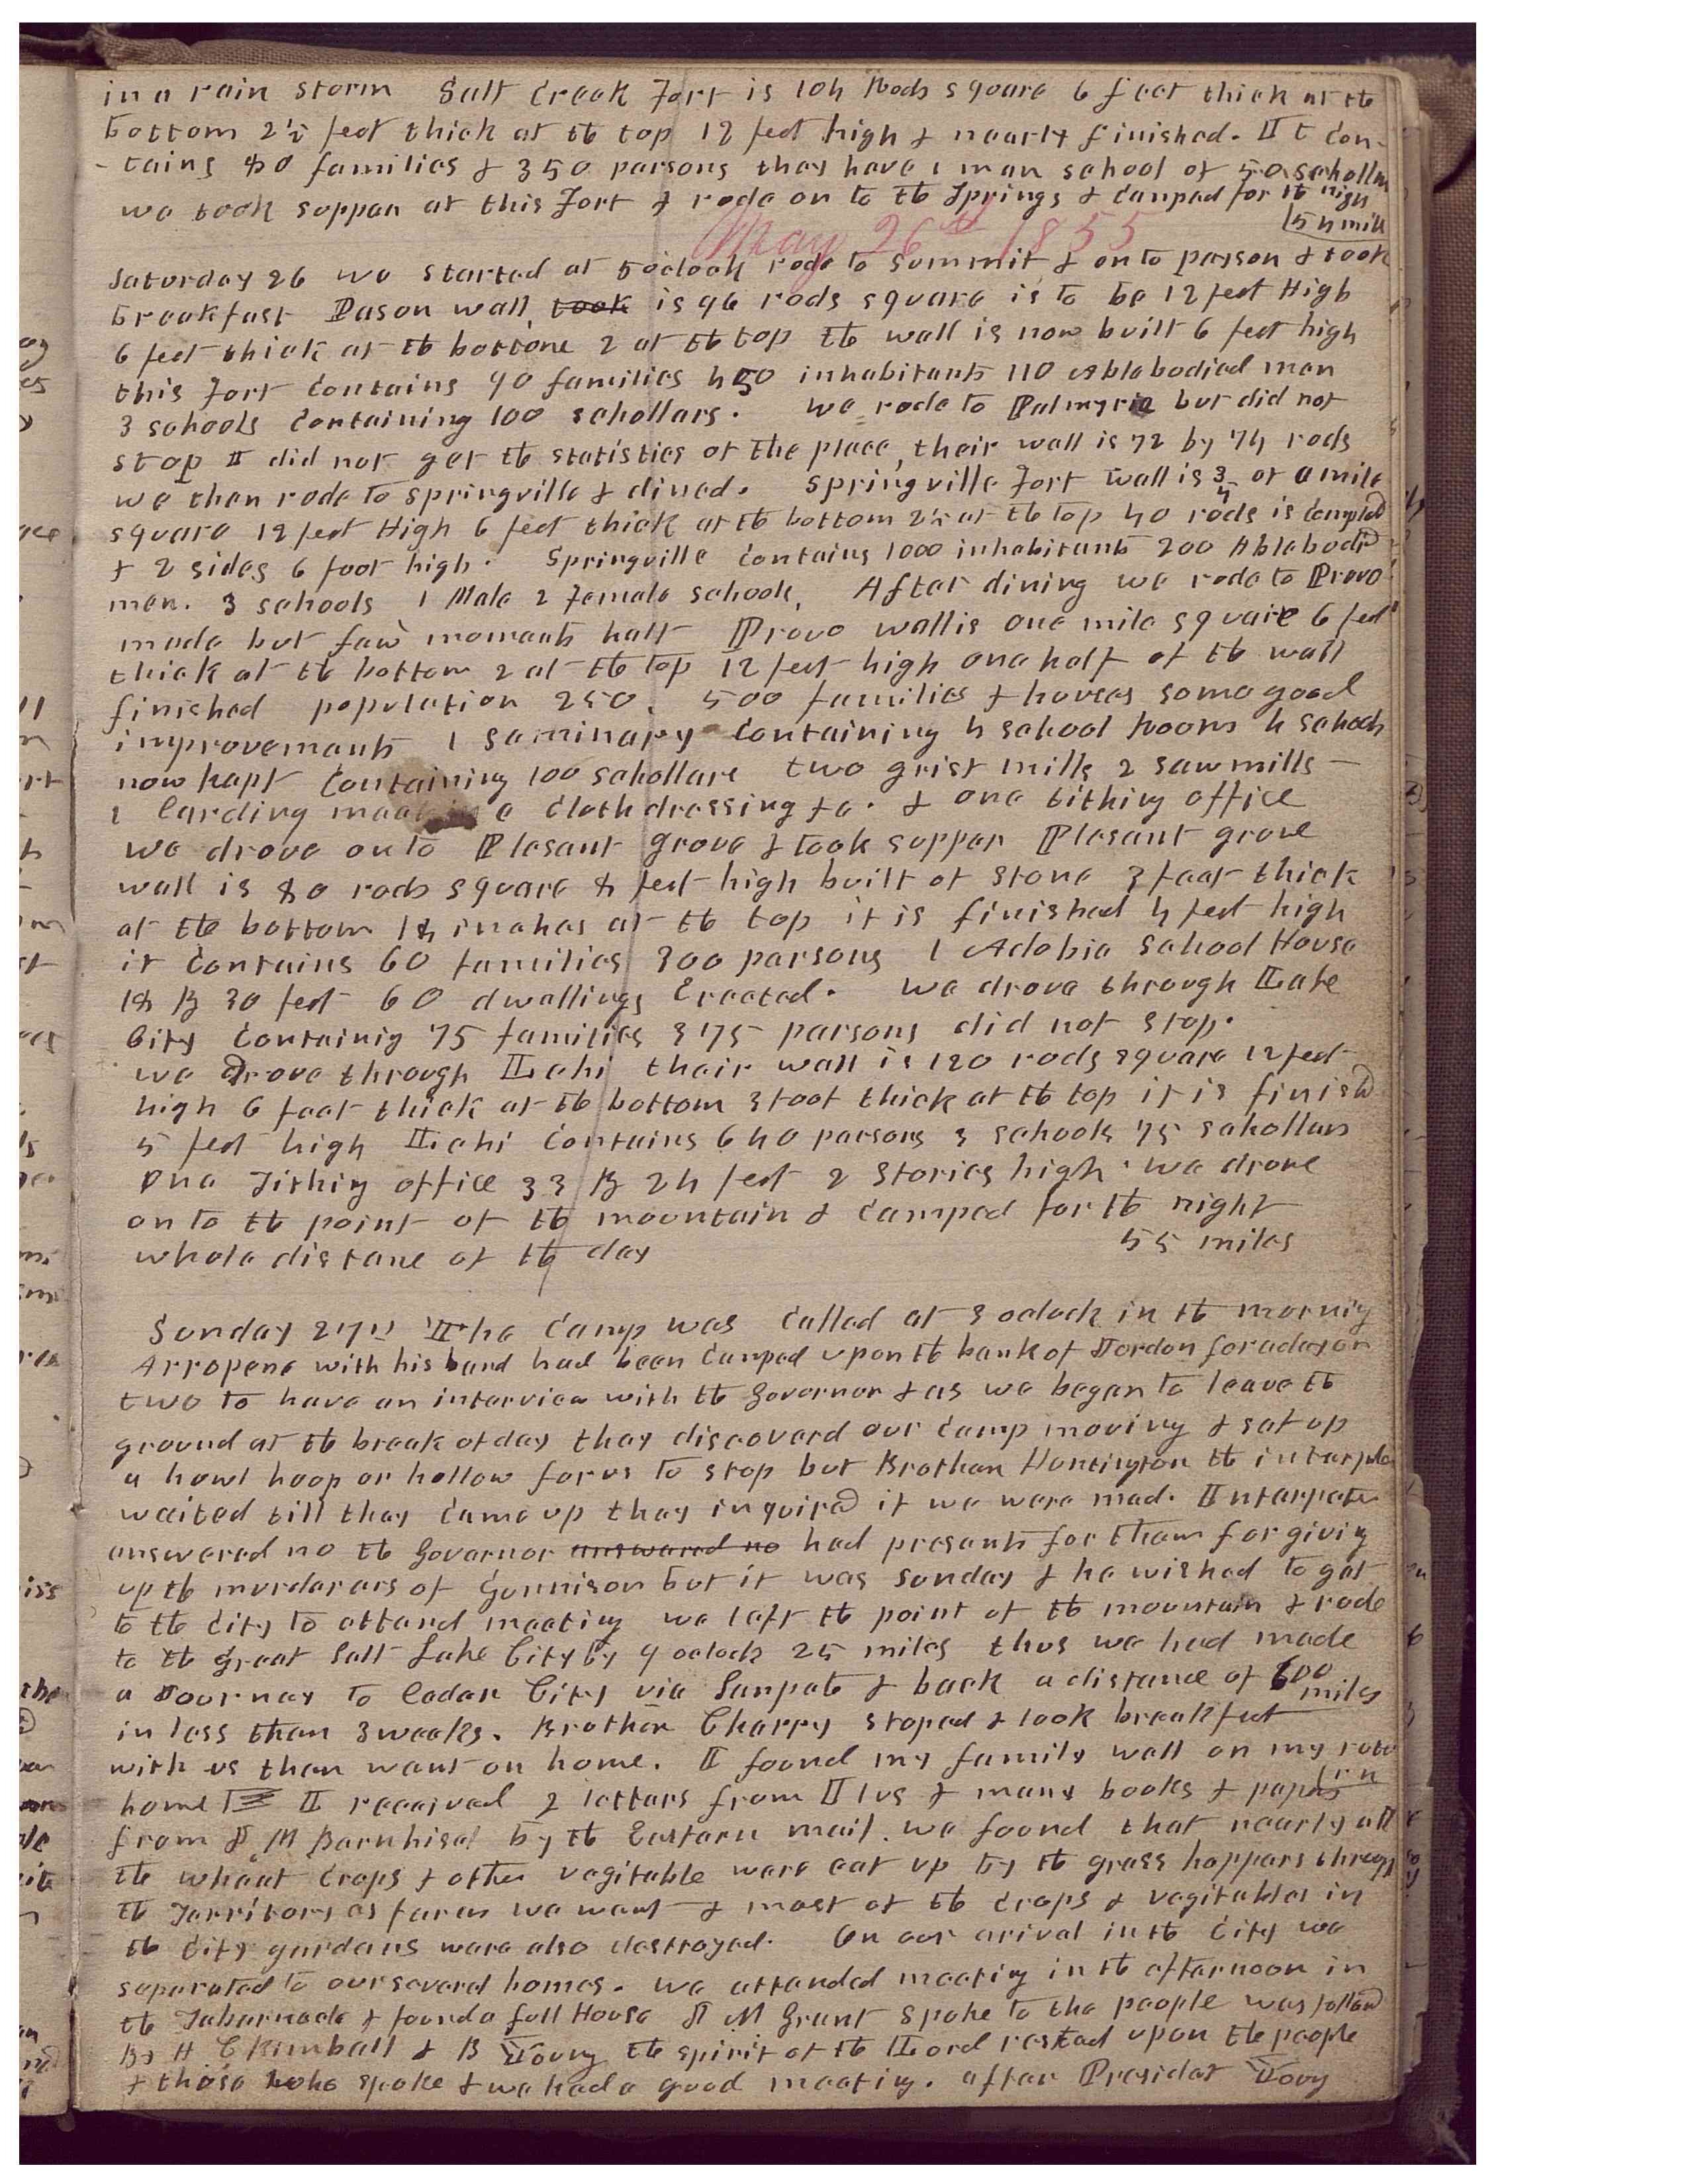 in a rain storm Salt Creek Fort is 104 Rods square 6 feet thick at the
bottom 2½ feet thick at the top 12 feet high & nearly finished. It con-
-tains 80 families & 350 persons they have 1 man school of 50 schollers
we took supper at this Fort & rode on to the Springs & camped for the night
54 mils
May 26th 1855
Saturday 26 we started at 5 oclock rode to summit & on to payson & took
breakfast Pason wall took is 96 rods square is to be 12 feet High
6 feet thick at the bottone 2 at the top the wall is now built 6 feet high
this Fort contains 90 families 450 inhabitants 110 Ablebodied men
3 schools containing 100 schollars. we rode to Palmyria but did not
stop I did not get the statistics of the place, their wall is 72 by 74 rods
we then rode to springville & dined. Springville Fort wall is ¾ of a mile
square 12 feet High 6 feet thick at the bottom 2½ at the top 40 rods is compled
& 2 sides 6 foot high. Springville contains 1000 inhabitants 200 Ablebodied
men. 3 schools 1 Male 2 Female schools, After dining we rode to Provo
made but few moments halt Provo wall is one mile square 6 feet
thick at the bottom 2 at the top 12 feet high one half of the wall
finished population 250. 500 families & houses some good
improvements 1 seminary containing 4 school Rooms 4 schools
now kept containing 100 schollars two grist mills 2 saw mills —
1 Carding machine cloth dressing &c. & one tithing office
we drove on to Plesant grove & took supper Plesant grove
wall is 80 rods square 8 feet high built of stone 3 feet thick
at the bottom 18 inches at the top it is finished 4 feet high
it contains 60 families 300 persons 1 Adobia School House
18 By 30 feet 60 dwellings Erected. we drove through Lake
City Containig 75 families 375 persons did not stop.
we drove through Lehi their wall is 120 rods square 12 feet
high 6 feet thick at the bottom 3 foot thick at the top it is finishd
5 feet high Lehi contains 640 persons 3 schools 75 schollars
One Tithing office 33 By 24 feet 2 Stories high. we drove
on to the point of the mountain & camped for the night
whole distane of the day 55 miles
Sunday 27th The camp was called at 3 oclock in the mornig
Arropene with his band had been camped upon the bank of Jordon for a day or
two to have an interview with the Governor & as we began to leave the
ground at the break of day they discoverd our camp moving & set up
a howl hoop or hollow for us to stop but Brother Huntington the interpter
waited till they came up they inquired if we were mad. Interpeter
answered no the Governor answered no had presents for them for givig
up the murderers of Gunnison but it was Sunday & he wished to get
to the City to attend meeting we left the point of the mountain & rode
to the great Salt Lake City by 9 oclock 25 miles thus we had made
a Journey to Cedar City via Sanpete & back a distance of 600 miles
in less than 3 weeks. Brother Cherry stoped & took breakfast
with us then went on home. I found my family well on my return
home I received 2 letters from Ilus & many books & papers
from J M Barnhisel by the Eastern mail. we found that nearly all
the wheat crops & other vegitable were eat up by the grass hoppers through
the Territory as far as we went & most of the crops & vegitables in
the City gardens were also destroyed. On our arival in the City we
seperated to our several homes. we attended meetig in the afternoon in
the Tabernacle & found a full House J M Grant spoke to the people was followd
By H C Kimball & B Young the spirit of the Lord rested upon the people
& those who spoke & we had a good meetig. after Presidet Young